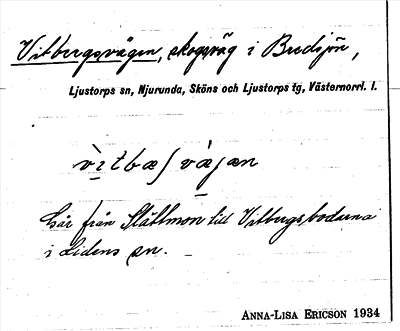 Vitbergsvägen, skogsväg i Bredsjön,
Ljustorps sn, Njurunda, Sköns och Ljustorps tg, Västernorrl. l.
vìtbæʃ vàjæn
Går från Slättmon till Vitbergsbodarna
i Lidens sn.
ANNA-LISA ERICSON 1934